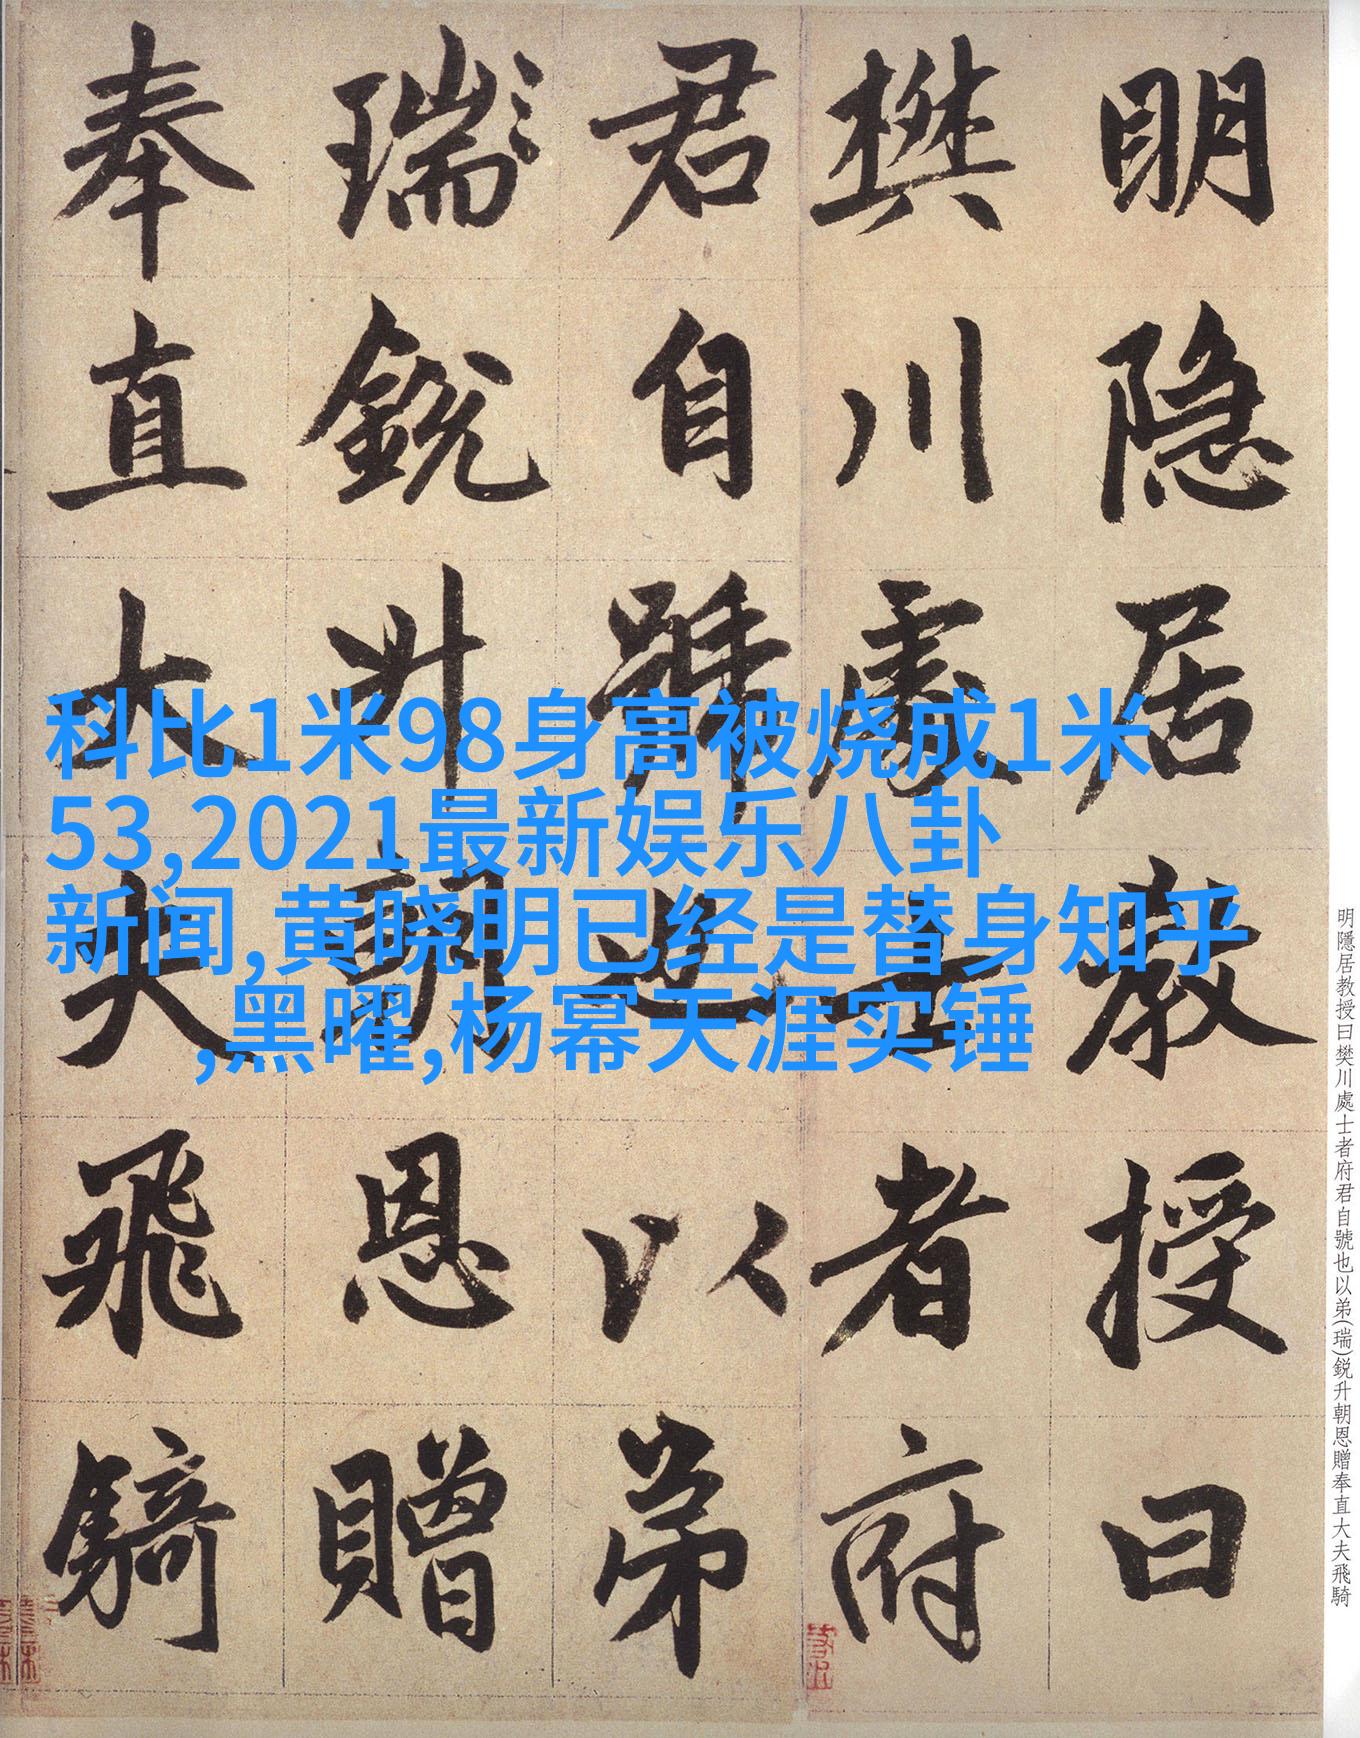 明隱居教授曰
樊川處士者府
君自號也以弟
瑞鋭升朝恩贈
奉直大夫飛騎
科比1米98身高被烧成1米
53,2021最新娱乐八卦
新闻,黄晓明已经是替身知乎
,黑曜,杨幂天涯实锤
明隱居教授曰樊川處士者府君自號也以弟(瑞)鋭升朝恩贈奉直大夫飛騎